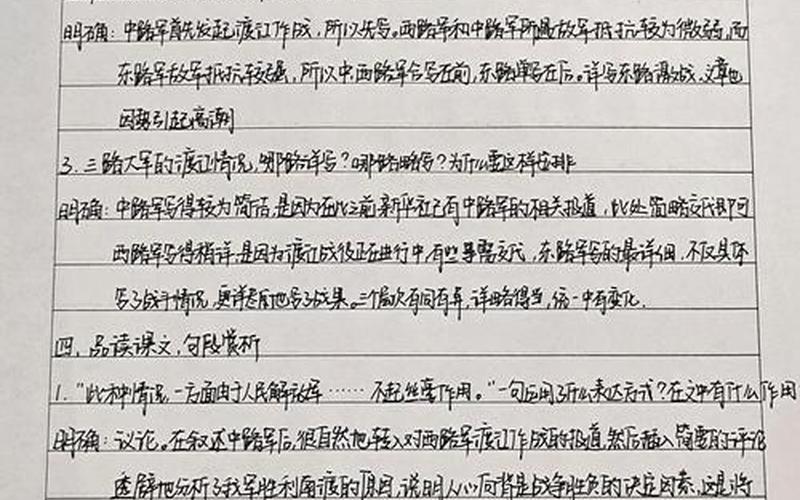 明确：中路军首先发起渡江作战，所以先写。西路军和中路军所遇敌军抵抗较为微弱，而
东路军敌军抵抗较强，所以中、西路军合写在前，东路单写在后。详写东路激战，文章也
因势引起高潮
3．三路大军的渡江情况，哪路详写？哪路略写？为什么要这样安排
明确：中路军写得较为简洁，是因为在此之前新华社已有中路军的相关报道，此处简略交代即可
西路军写得稍详，是因为渡江战役正在进行中，有些事需交代，东路军写的最详细，不仅具体
写了战斗情况，更详尽地写了战果。三个层次有同有异，详略得当，统一中有变化．
四、品读课文，句段赏析
1．"此种情况，一方面由于人民解放军……不起丝毫作用。"一句应用了什么表达方式？在文中有什么作用
明确：议论。在叙述中路军后，很自然地转入对西路军渡江作战的报道，然后插入简要的评论
透辟地分析了我军胜利南渡的原因，说明人心向背是战争胜负的决定因素，这是将